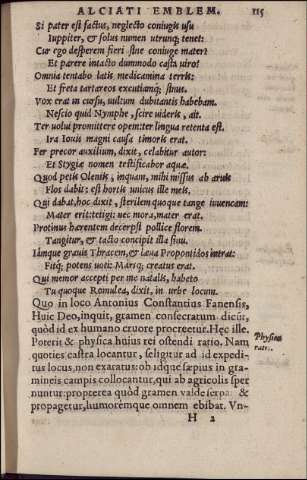 ALCIATI EMBLEM. 115
Si pater est factus, neglecto coniugis usu
Iuppiter, & solus numen utrunq; tenet:
Cur ego desperem fieri sine coniuge mater?
Et parere intacto dummodo casta uiro?
Omnia tentabo latis medicamina terris:
Et freta tartareos excutiamq; sinus.
Vox erat in cursu, uultum dubitantis habebam.
Nescio quid Nymphe, scire uideris, ait.
Ter uolui promittere opem: ter lingua retenta est.
Ira Iouis magni causa timoris erat.
Fer precor auxilium, dixit, celabitur autor:
Et Stygiæ nomen testificabor aquæ.
Quod petis Oleniis, inquam, mihi missus ab aruis
Flos dabit: est hortis unicus ille meis.
Qui dabat, hoc, dixit, sterilem quoque tange iuuencam:
Mater erit: tetigi: nec mora, mater erat.
Protinus hærentem decerpsi pollice florem.
Tangitur, & tacto concipit illa sinu.
Iamque grauis Thracem, & læua Propontidos intrat:
Fitq; potens uoti: Marsq; creatus erat.
Qui memor accepti per me natalis, habeto
Tu quoque Romulea, dixit, in urbe locum.
Quo in loco Antonius Constantius Fanensis,
Huic Deo, inquit, gramen consecratum dicūt,
quòd id ex humano cruore procreetur. Hęc ille.
Poterit & physica huius rei ostendi ratio. Nam
quoties castra locantur, seligitur ad id expedi-
tus locus, non exaratus: ob idque sæpius in gra-
mineis campis collocantur, qui ab agricolis sper
nuntur: propterea quòd gramen valde serpat &
propagetur, humoremque omnem ebibat. Vn-
Physica
ratio.
H 2